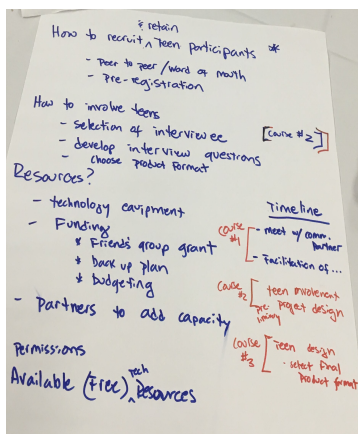 & retain
How to recruit ^ Teen participants *
- Peer to Peer / word of mouth
- Pre-registration
How to involve teens
- selection of interviewee
[Course #2]
- develop interview questions
- choose product format
Resources?
- technology equipment
- Funding
* Friends group grant
* back up plan
* budgeting
- Partners to add capacity
Permissions
Available (Free) ^ tech Resources
Timeline
Course #1 [ - meet w/ comm. partner
- Facilitation of ...
Course #2 [ teen involvement
project design
Course #3 [ Teen design
- select final
product format